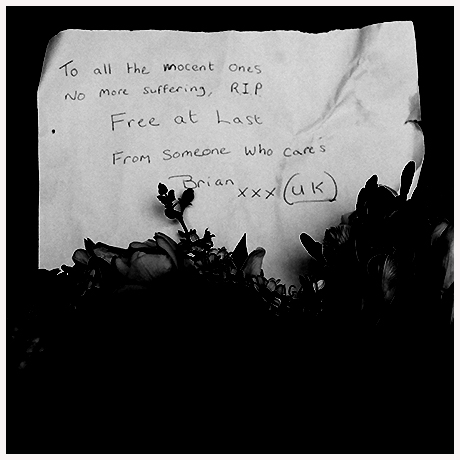 To all the mocent ones
No more suffering, R.I.P
Free at Last
From Someone Who cares
Brian xxx (UK)